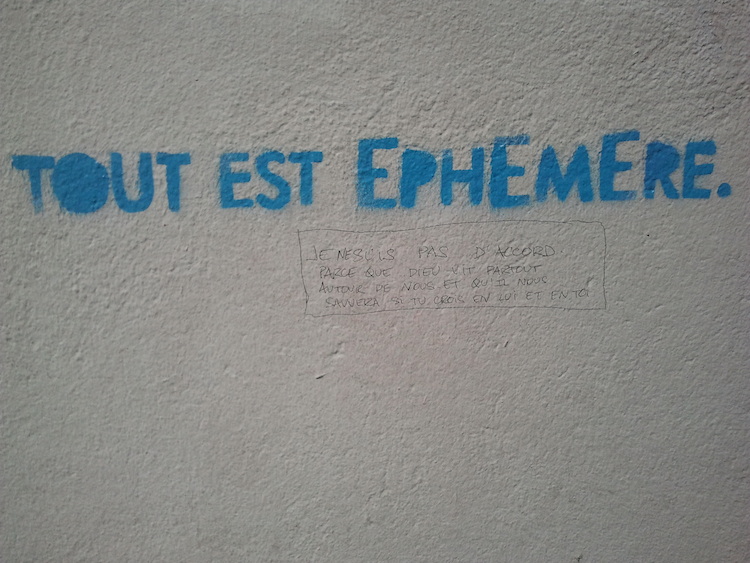 TOUT EST EPHEMERE.
JE NE SUIS PAS D'ACCORD
PARCE QUE DIEU VIT PARTOUT
AUTOUR DE NOUS ET QU'IL NOUS
SAUVERA SI TU CROIS EN LUI ET EN TOI